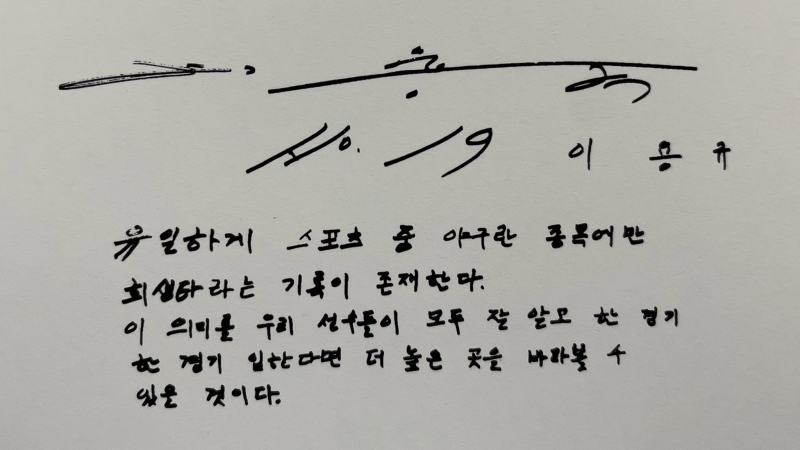 10. 19 이용규
유일하게 스포츠 중 야구란 종목에만
희생타라는 기록이 존재한다.
이 의미를 우리 선수들이 모두 잘 알고 한 경기
한 경기 임한다면 더 높은 곳을 바라볼 수
있을 것이다.